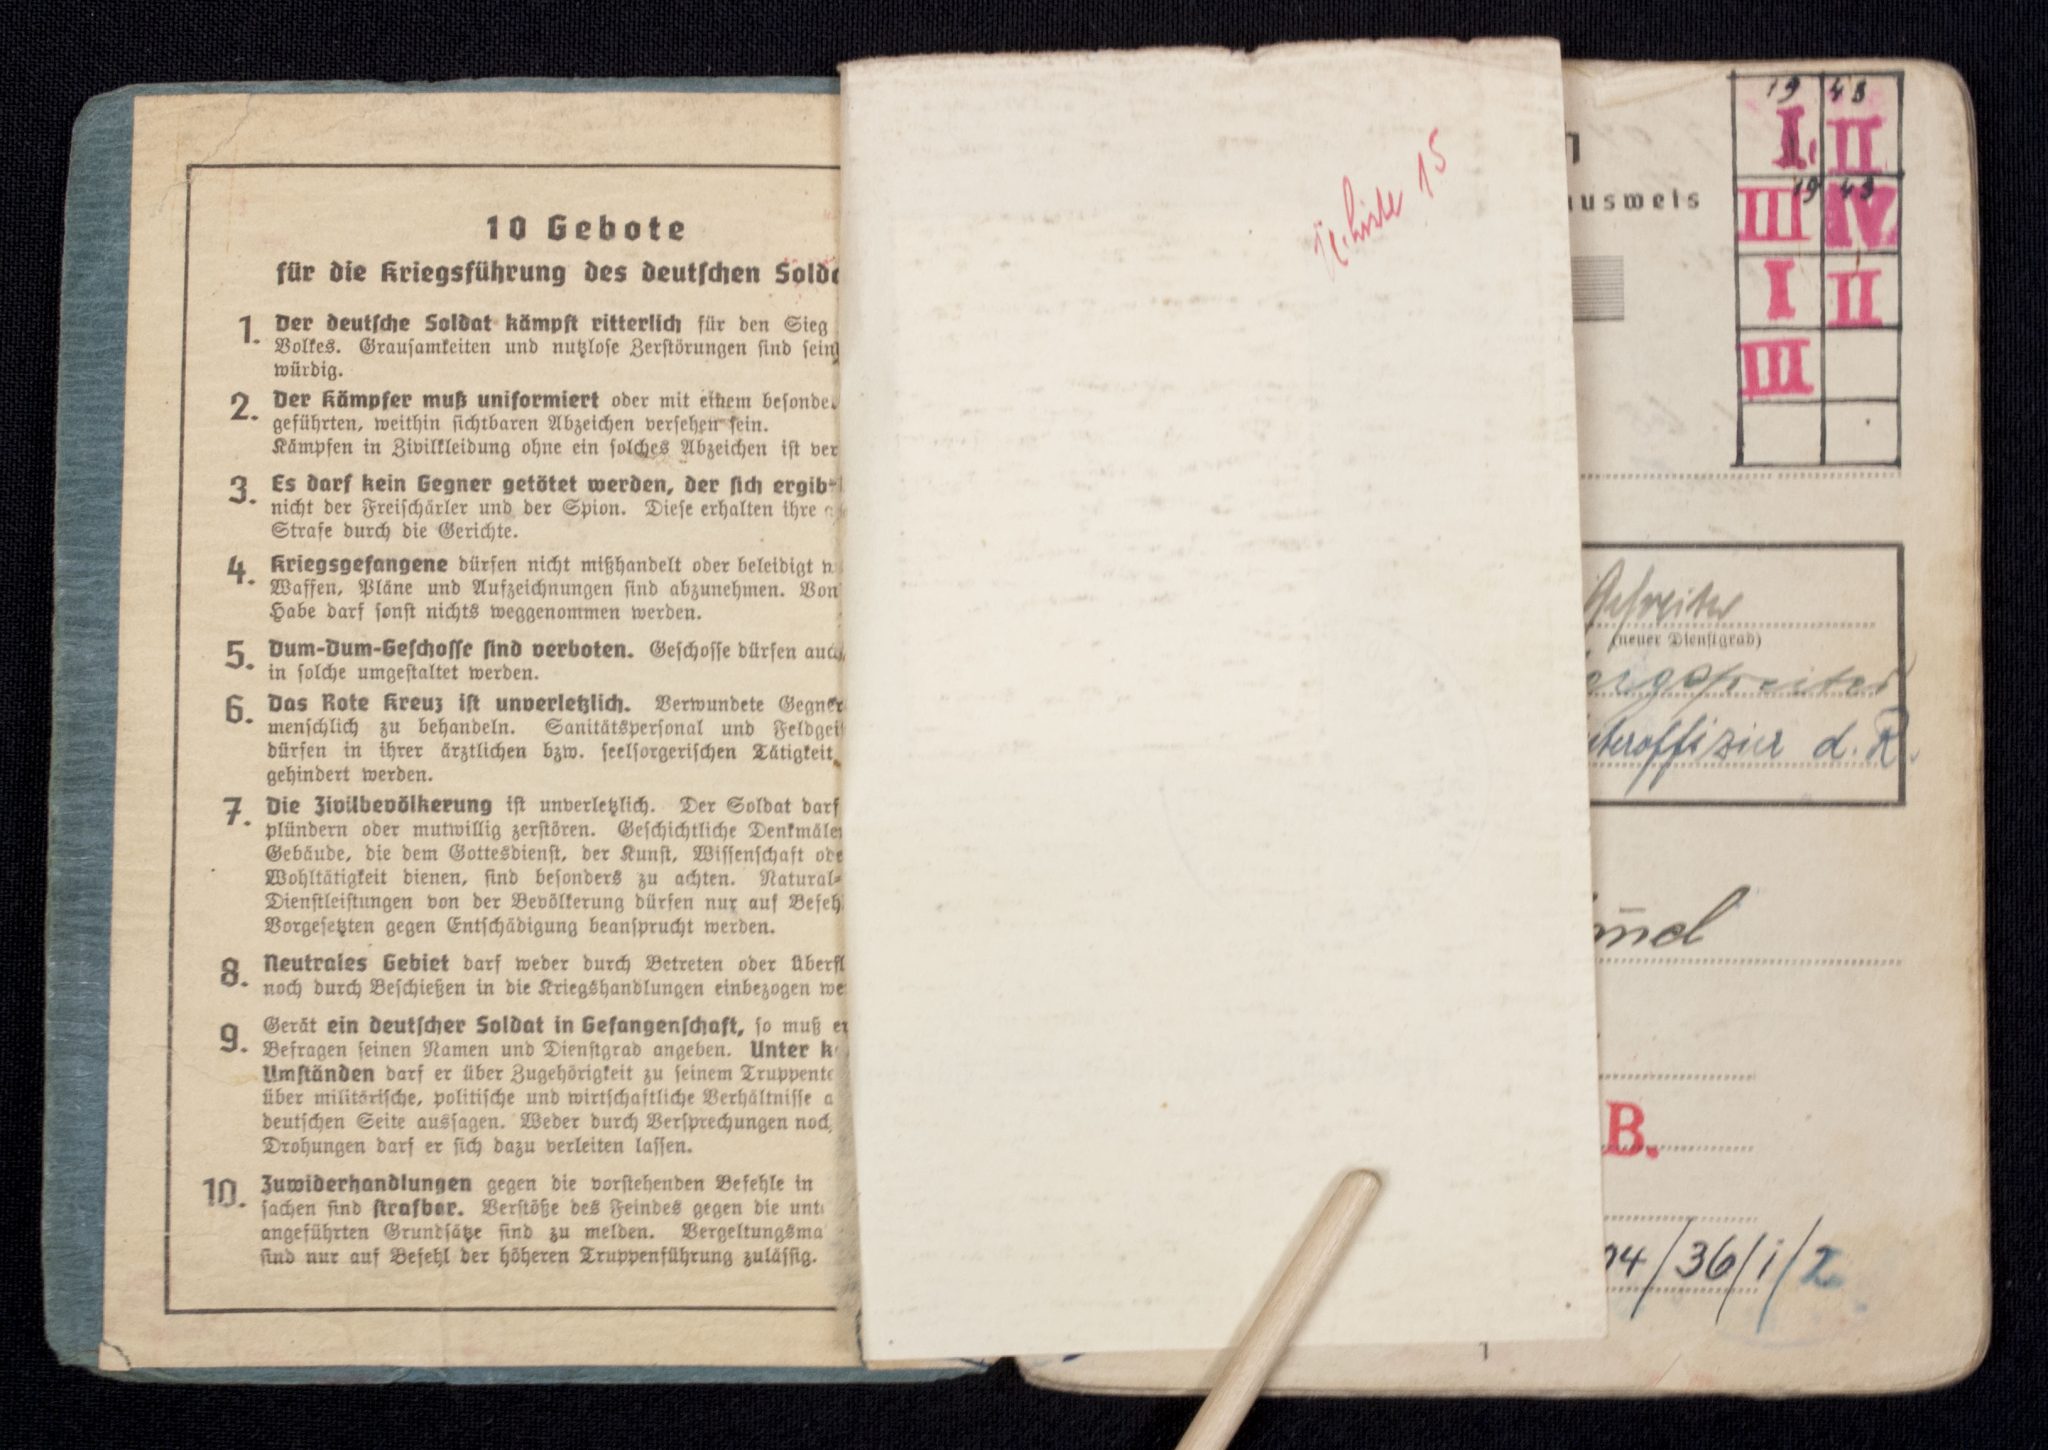 10 Gebote
für die Kriegsführung des deutschen Solda
1. Der deutsche Soldat kämpft ritterlich für den Sieg
Volkes. Grausamkeiten und nutzlose Zerstörungen sind sein
würdig.
2. Der Kämpfer muß uniformiert oder mit einem besonde
geführten, weithin sichtbaren Abzeichen versehen sein.
Kämpfen in Zivilkleidung ohne ein solches Abzeichen ist ver
3. Es darf kein Gegner getötet werden, der sich ergib
nicht der Freischärler und der Spion. Diese erhalten ihre
Strafe durch die Gerichte.
4. Kriegsgefangene dürfen nicht mißhandelt oder beleidigt
Waffen, Pläne und Aufzeichnungen sind abzunehmen. Von
Habe darf sonst nichts weggenommen werden.
5. Dum-Dum-Geschosse sind verboten. Geschosse dürfen auch
in solche umgestaltet werden.
6. Das Rote Kreuz ist unverletzlich. Verwundete Gegner
menschlich zu behandeln. Sanitätspersonal und Feldgei
dürfen in ihrer ärztlichen bzw. seelsorgerischen Tätigkeit
gehindert werden.
7. Die Zivilbevölkerung ist unverletzlich. Der Soldat darf
plündern oder mutwillig zerstören. Geschichtliche Denkmäler
Gebäude, die dem Gottesdienst, der Kunst, Wissenschaft ode
Wohltätigkeit dienen, sind besonders zu achten. Natural-
Dienstleistungen von der Bevölkerung dürfen nur auf Befehl
Vorgesetzten gegen Entschädigung beansprucht werden.
8. Neutrales Gebiet darf weder durch Betreten oder überfl
noch durch Beschießen in die Kriegshandlungen einbezogen we
9. Gerät ein deutscher Soldat in Gefangenschaft, so muß er
Befragen seinen Namen und Dienstgrad angeben. Unter k
Umständen darf er über Zugehörigkeit zu seinem Truppente
über militärische, politische und wirtschaftliche Verhältnisse a
deutschen Seite aussagen. Weder durch Versprechungen noch
Drohungen darf er sich dazu verleiten lassen.
10. Zuwiderhandlungen gegen die vorstehenden Befehle in
sachen sind strafbar. Verstöße des Feindes gegen die unt
angeführten Grundsätze sind zu melden. Vergeltungsma
sind nur auf Befehl der höheren Truppenführung zulässig.
15
n
ausweis
19 43
I. II
19 43
III IV
I II
III
Gefreiter
(neuer Dienstgrad)
ergefreiter
nteroffizier d. R.
B.
04/36/i/2
1